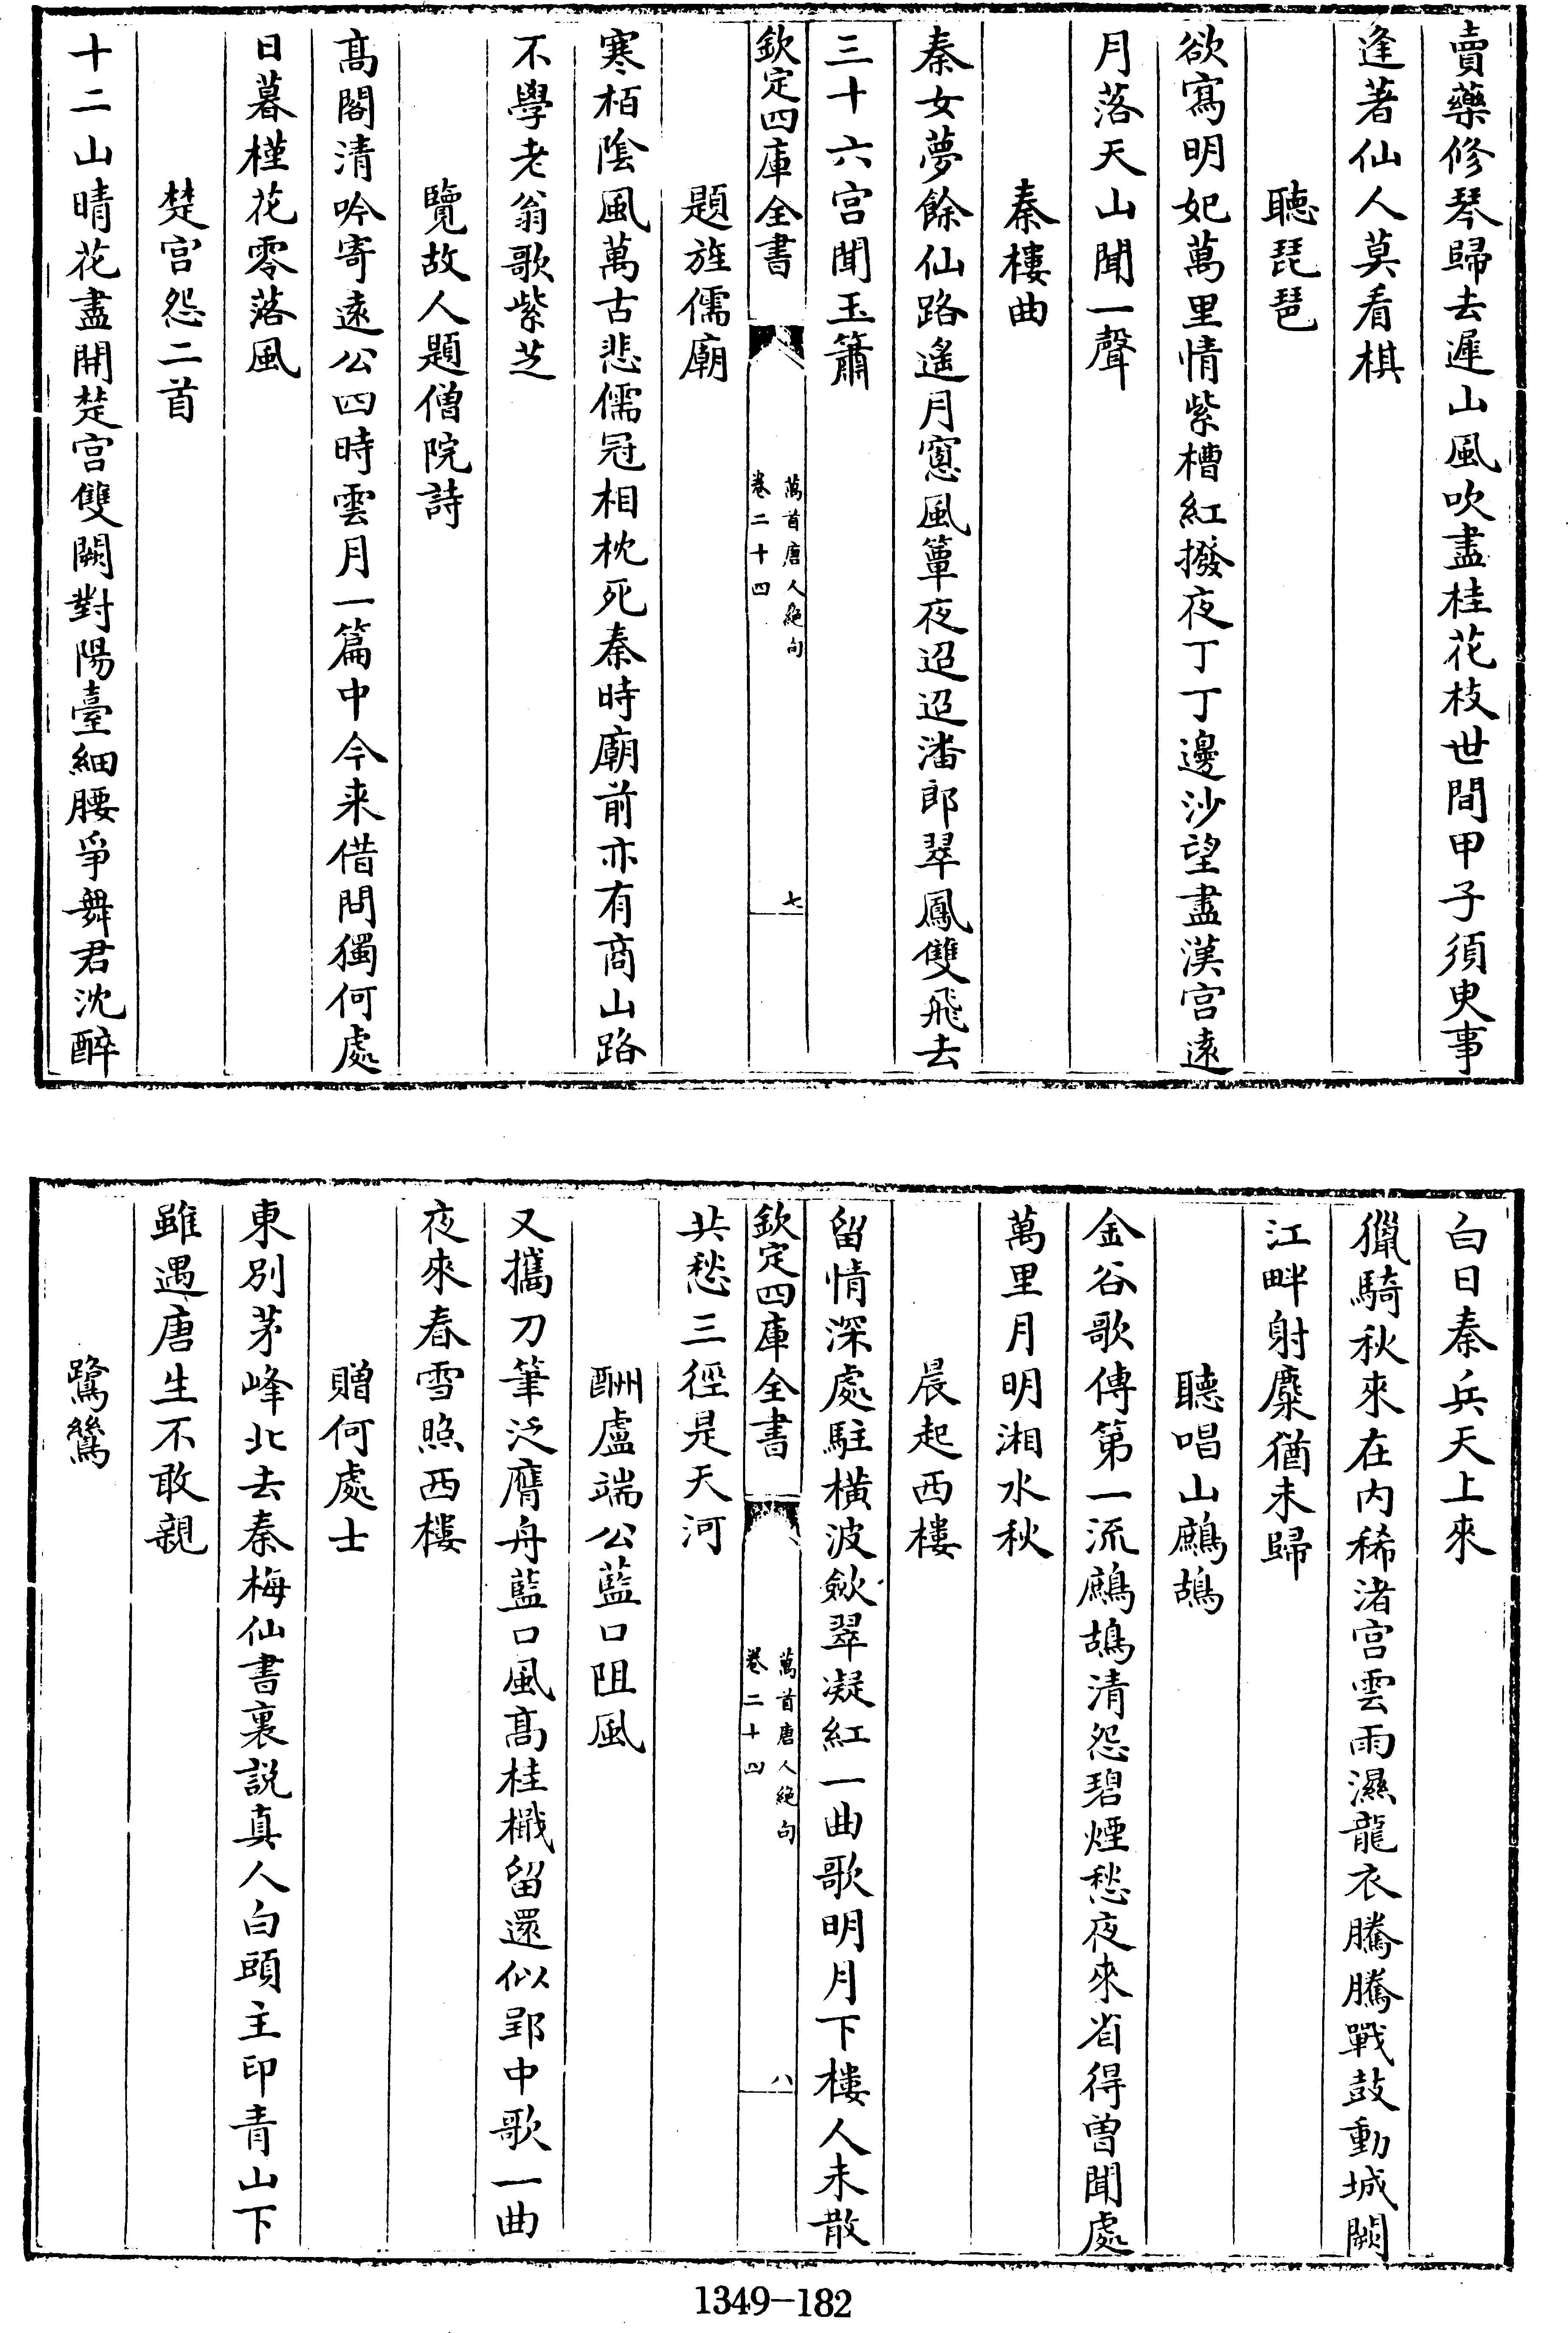 賣藥修琴歸去遲山風吹盡桂花枝世間甲子須臾事
逢著仙人莫看棋
聽琵琶
欲寫明妃萬里情紫槽紅撥夜丁丁邊沙望盡漢宫遠
月落天山聞一聲
秦樓曲
秦女夢餘仙路遙月窻風簟夜迢迢潘郎翠鳳雙飛去
三十六宫聞玉簫
欽定四庫全書
萬首唐人絕句
卷二十四
七
題旌儒廟
寒栢隂風萬古悲儒冠相枕死秦時廟前亦有商山路
不學老翁歌紫芝
覽故人題僧院詩
髙閣清吟寄遠公四時雲月一篇中今来借問獨何處
日暮槿花零落風
楚宫怨二首
十二山晴花盡開楚宫雙闕對陽臺細腰爭舞君沈醉
白日秦兵天上來
獵騎秋來在内稀渚宫雲雨濕龍衣騰騰戰鼓動城闕
江畔射麋猶未歸
聽唱山鷓鴣
金谷歌傳第一流鷓鴣清怨碧煙愁夜來省得曽聞處
萬里月明湘水秋
晨起西樓
留情深處駐横波斂翠凝紅一曲歌明月下樓人未散
共愁三徑是天河
欽定四庫全書
萬首唐人絕句
卷二十四
八
酬盧端公藍口阻風
又攜刀筆泛膺舟藍口風髙桂檝留還似郢中歌一曲
夜來春雪照西樓
贈何處士
東別茅峰北去秦梅仙書裏説真人白頭主印青山下
雖遇唐生不敢親
鷺鷥
1349-182